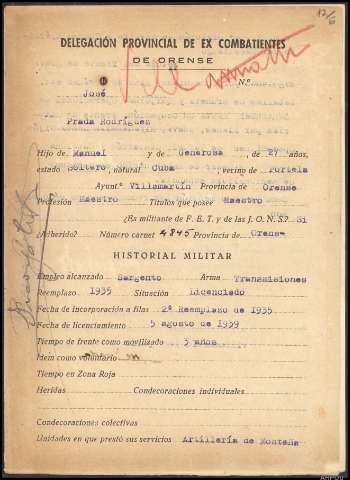 12/6
DELEGACIÓN PROVINCIAL DE EX COMBATIENTES
DE ORENSE
N.º
José
Prada Rodríguez
Hijo de Manuel y de Generosa, de 27 años,
estado Soltero, natural Cuba, vecino de Portela
Ayunt.º Villamartín Provincia de Orense
Profesión Maestro Títulos que posee Maestro
¿Es militante de F. E. T. y de las J. O. N. S.? Si
¿Adherido? Número carnet 4845 Provincia de Orense
HISTORIAL MILITAR
Empleo alcanzado Sargento Arma Transmisiones
Reemplazo 1935 Situación Licenciado
Fecha de incorporación a filas 2º Reemplazo de 1935
Fecha de licenciamiento 5 agosto de 1939
Tiempo de frente como movilizado 3 años
Idem como voluntario
Tiempo en Zona Roja
Heridas Condecoraciones individuales
Condecoraciones colectivas
Unidades en que prestó sus servicios Artillería de Montaña